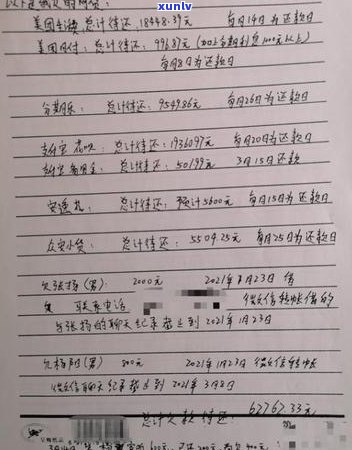 xunlv
.com
美团生活费 总计待还：18448.39元 每月19日为还款日
美团月付：总计待还：996.87元
每月8日为还款日
分期乐：总计待还：9549.86元 每月26日为还款日
支付宝花呗：总计待还：19360.97元 每月20日为还款日
总计待还：501.99元 3月15日还款
安逸花：总计待还：预计5600元 每月15日为还款日
众安小贷：总计待还：5504.25元 每月25日为还款日
欠张扬（男）：2000元 2021年1月23日 借
联系电话 微信转帐借的
与张扬的聊天纪录截止到2021年1月23日
欠杨阳（男） 800元 2021年1月23日 微信转帐
微信聊天纪录截止到2021年3月8日
总计欠款待还：62762.33元